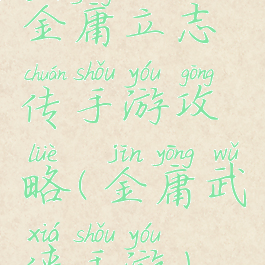 金庸立志
chuán shǒu yóu gōng
传手游攻
lüè jīn yōng wǔ
略(金庸武
xiá shǒu yóu
侠手游)